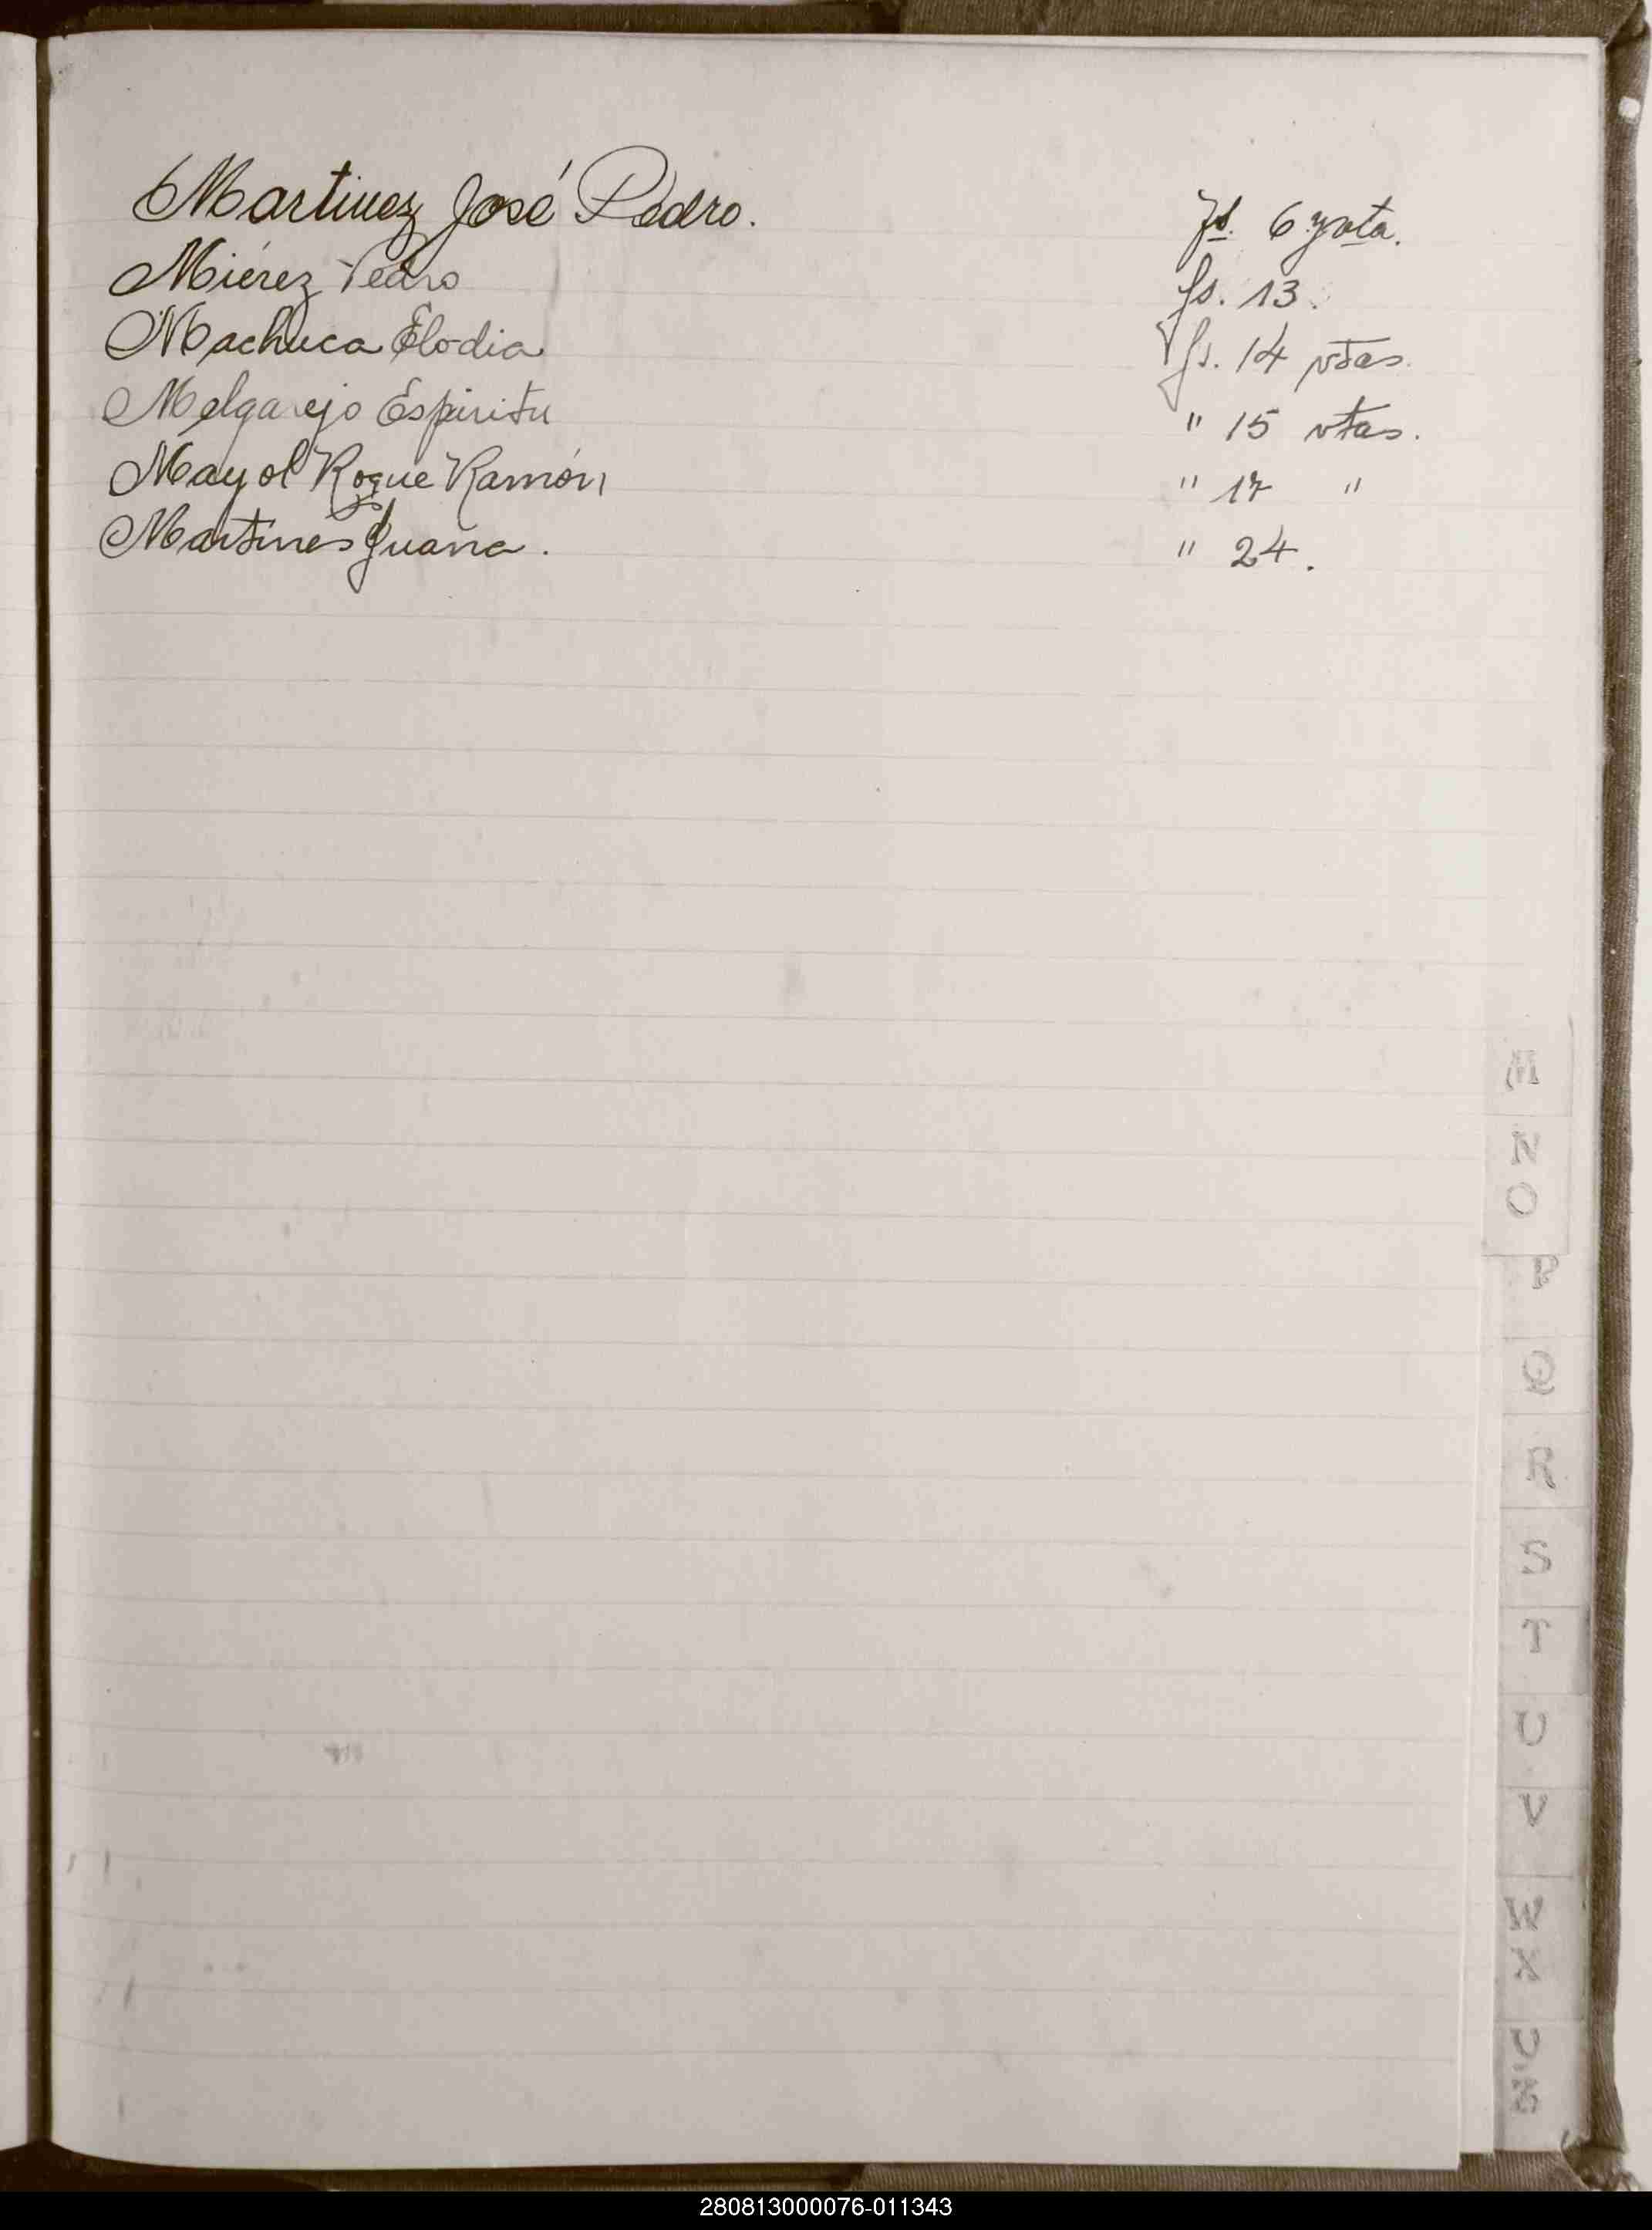 Martinez José Pedro. fs. 6 y vta.
Miérez Pedro fs. 13.
Machuca Elodia fs. 14 vtas.
Melgarejo Espiritu " 15 vtas.
Mayol Roque Ramón " 17 "
Martines Juana. " 24.
M
N
O
P
Q
R
S
T
U
V
W
X
280813000076-011343